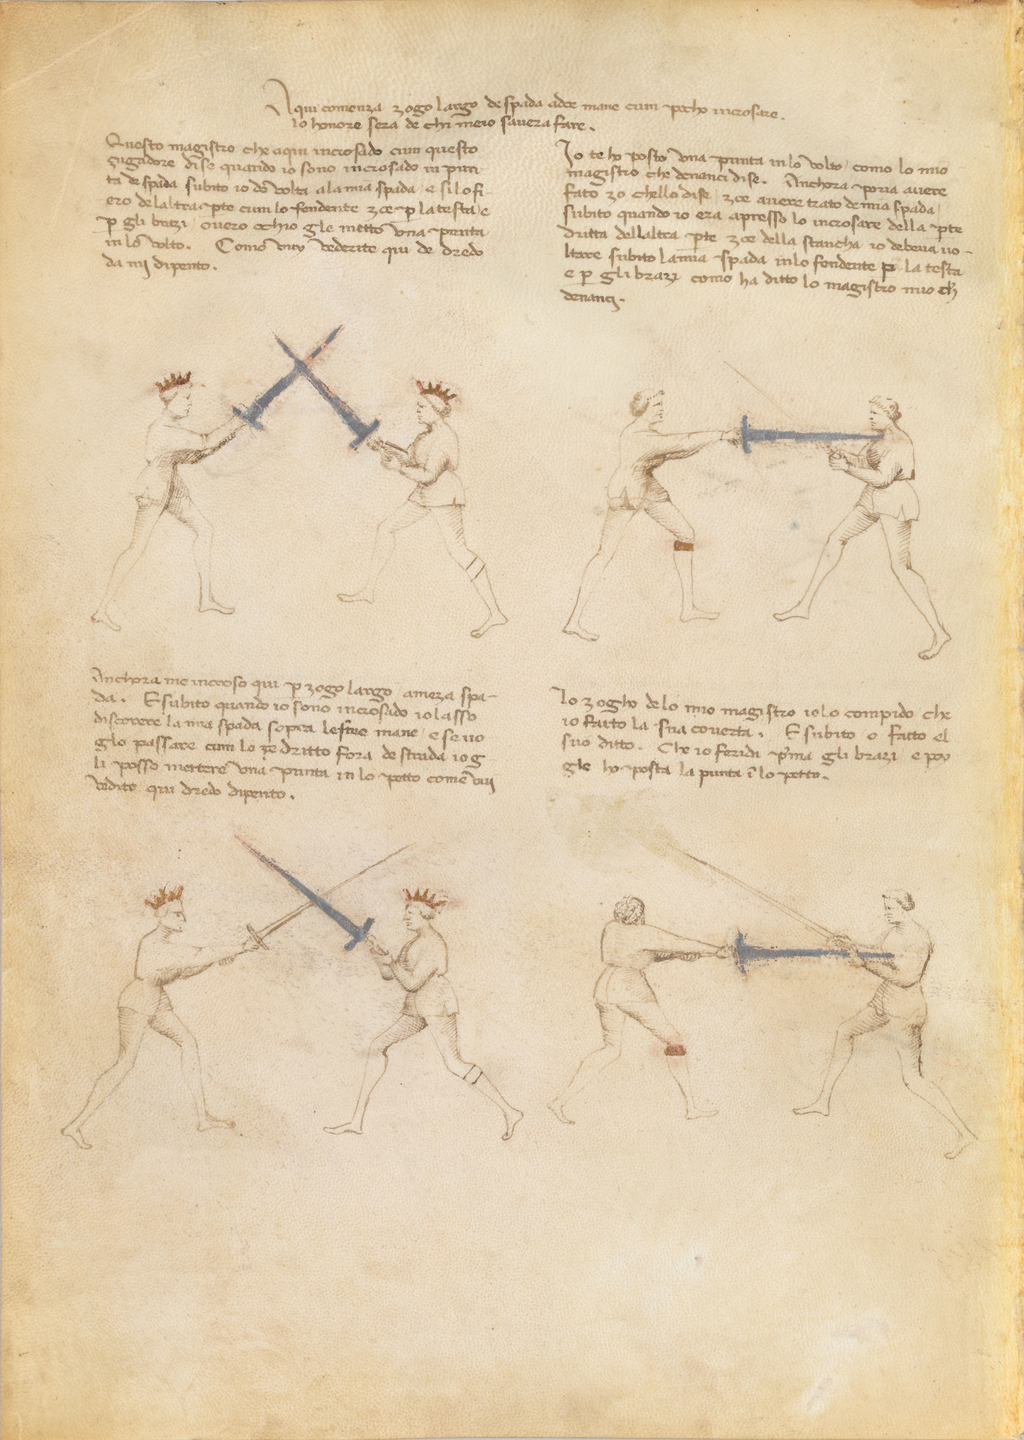 Aqui comenza zogo largo de spada adoe mane cum pocho incrosare.
lo honore sera de chi meio savera fare.
Questo magistro che aqui incrosado cum questo
zugadore dise quando io sono incrosado in pun
ta de spada subito io do volta ala mia spada e si lo fi
ero delaltra pte cum lo fendente zoe p la testa e
p gli brazi overo ochio gle metto una punta
in lo volto. Como vuy vederite qui de dredo
da mi dipento.
Io te ho posto una punta in lo volto como lo mio
magistro che denanci dise. Anchora poria avere
fato zo chello dise zoe avere trato de mia spada
subito quando io era apresso lo incrosare della pte
dritta dellaltra pte zoe della stancha io debeva vo-
ltare subito la mia spada in lo fendente p la testa
e p gli brazi como ha ditto lo magistro mio ch
denanci.
Anchora me incroso qui p zogo largo ameza spa-
da. E subito quando io sono incrosado io lasso
discorere la mia spada sopra le sue mane e se vo
glo passare cum lo pe dritto fora de strada io g
li posso mettere una punta in lo petto come vuy
vedite qui dredo dipento.
Lo zogho de lo mio magistro io lo compido che
io fatto la sua coverta. E subito o fatto el
suo ditto. Che io feridi p'ma gli brazi e poy
gle ho posta la punta ī lo petto.